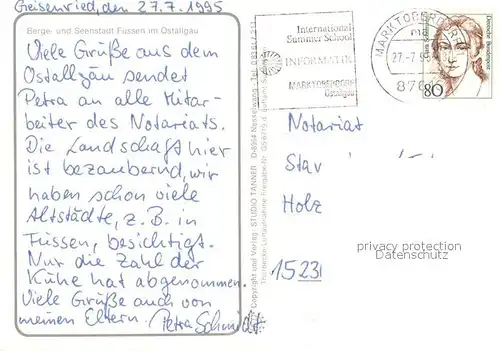 Geisenried, den 27.7.1995
Berge- und Seenstadt Füssen im Ostallgäu
Viele Grüße aus dem
Ostallgäu sendet
Petra an alle Mitar-
beiter des Notariats.
Die Landschaft hier
ist bezaubernd, wir
haben schon viele
Altstädte, z.B. in
Füssen, besichtigt.
Nur die Zahl der
Kühe hat abgenommen.
Viele Grüße auch von
meinen Eltern. Petra Schmidt
Copyright und Verlag: STUDIO TANNER · D-8964 Nesselwang · Tel.
International
Summer School
INFORMATIK
MARKTOBERDORF
Ostallgäu
MARKTOBERDORF
27.-7.95
Deutsche Bundespost
80
Notariat
Stav
Holz
15231
privacy protection
Datenschutz